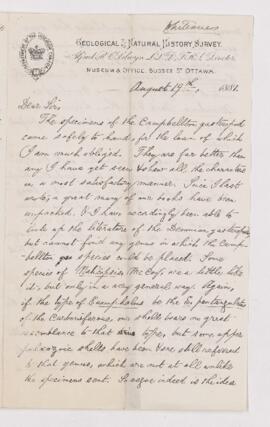 Whiteaves
GEOLOGICAL & NATURAL HISTORY SURVEY.
Alfred R. C. Selwyn L.L.D. F.R.S. Director
MUSEUM & OFFICE. SUSSEX ST OTTAWA.
August 19th, 1881.
Dear Sir
The specimens of the Campbellton gasteropod
came safely to hand, for the loan of which
I am much obliged. They are far better than
any I have yet seen & show all the characters
in a most satisfactory manner. Since I last
wrote, a great many of our books have been
unpacked, & I have accordingly been able to
look up the literature of the Devonian gasteropoda
but cannot find any genus in which the Camp-
bellton species could be placed. Some
species of McCoy's are a little like
it, but only in a very general way. Again,
if the type of Euomphalus be the E. pentangulatus
of the Carboniferous, our shells bear no great
resemblance to that type, but some upper
palæozoic shells have been & are still referred
to that genus, which are not at all unlike
the specimens sent. So vague indeed is the idea